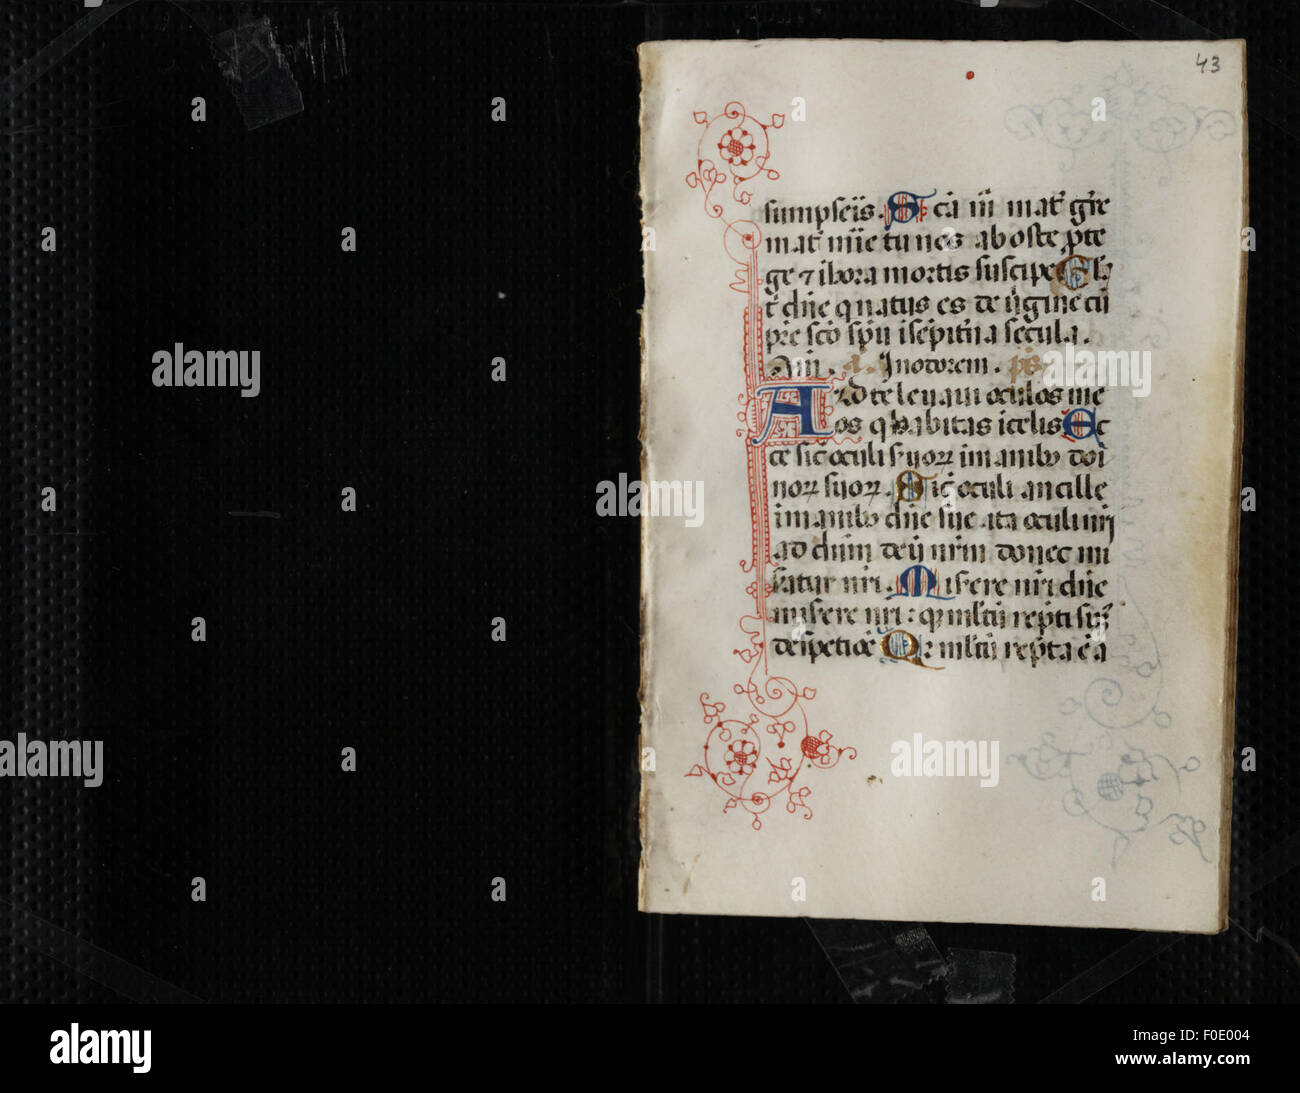 43
sumpseis. Sca m mat gre
mat mie tu nos ab oste pte
ge & i hora mortis suscipe Gl
t dne q natus es de vgine cu
pre sco spu i sepitna secula.
Am. a. In otorem. ps
Ad te levavi oculos me
os q habitas i celis Ec
ce sic oculi svoꝝ i manibꝫ doi
noꝝ suoꝝ. Sic oculi ancille
i manibꝫ dne sue ita oculi nri
ad dnm deu nrm donec mi
seatur nri. Miserere nri dne
miserere nri: qꝛ mltu repti su
despetioe Qꝛ mltu repta e a
alamy
Image ID: F0E004
www.alamy.com